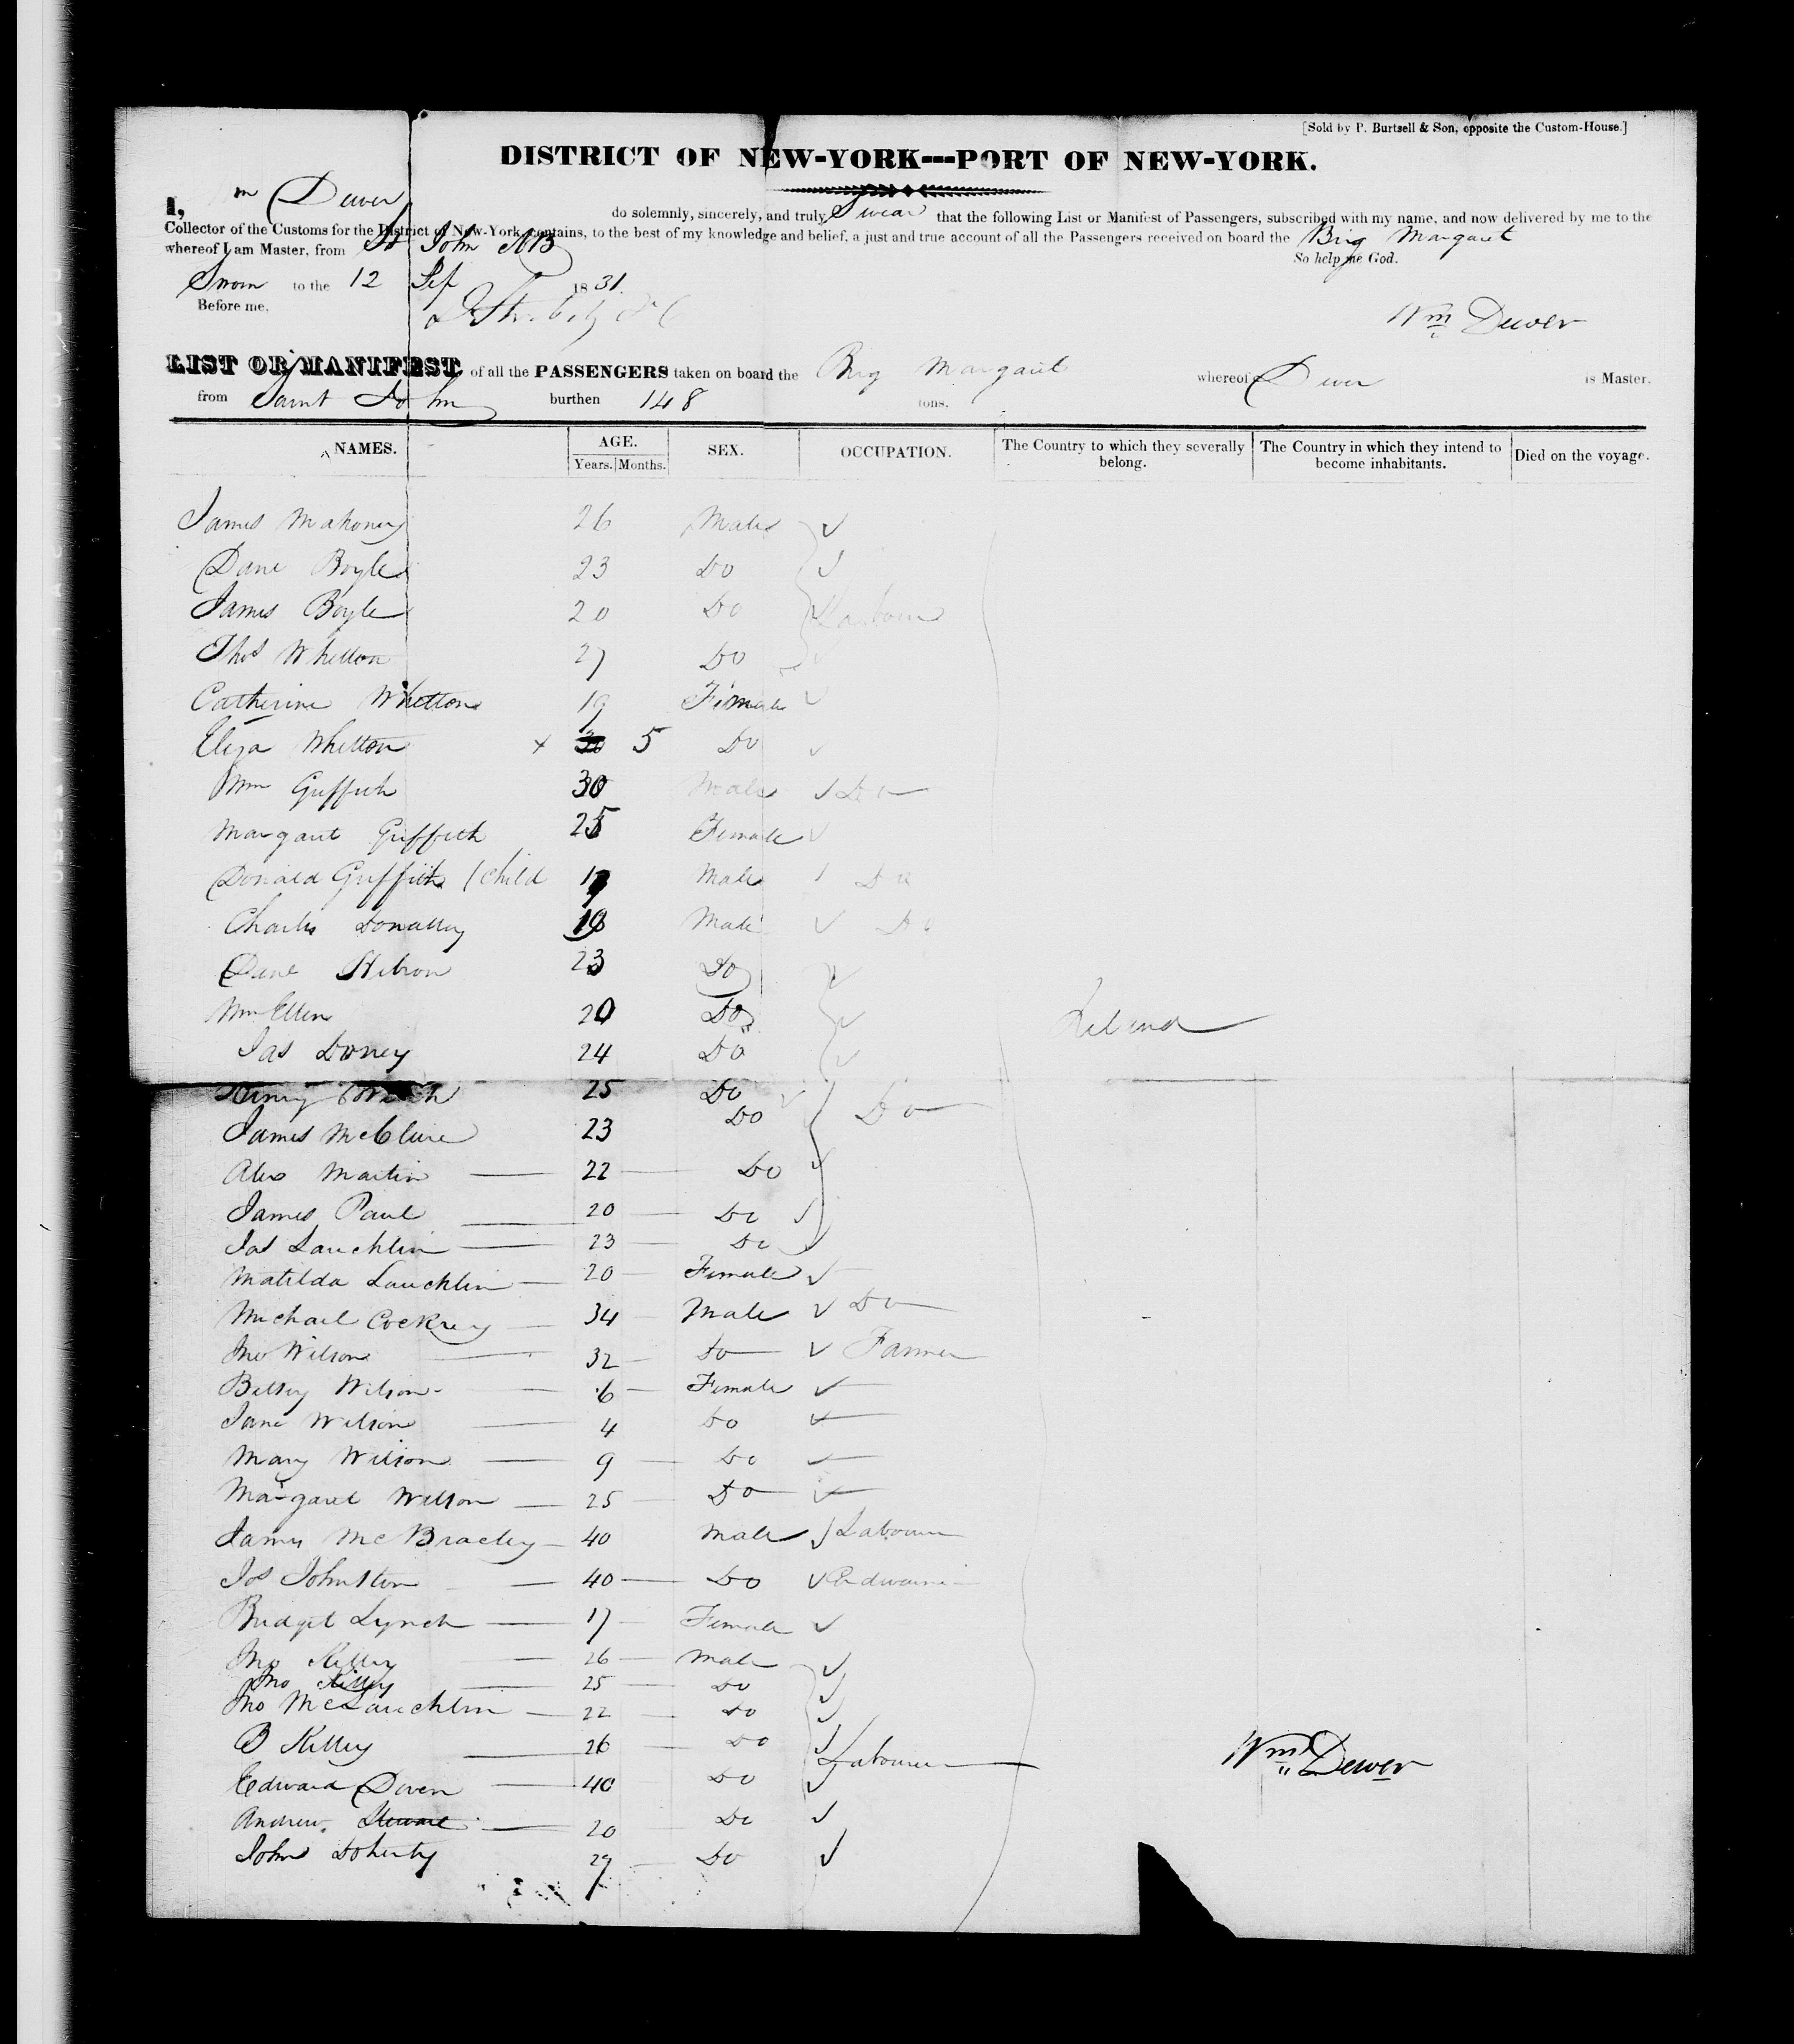 [Sold by P. Burtsell & Son, opposite the Custom-House.]
DISTRICT OF NEW-YORK---PORT OF NEW-YORK.
I, Wm Dewer do solemnly, sincerely, and truly Swear that the following List or Manifest of Passengers, subscribed with my name, and now delivered by me to the
Collector of the Customs for the District of New-York, contains, to the best of my knowledge and belief, a just and true account of all the Passengers received on board the Brig Margaret
whereof I am Master, from St John NB
So help me God.
Sworn to the 12 Sep 1831.
Before me,
Wm Dewer
LIST OR MANIFEST of all the PASSENGERS taken on board the Brig Margaret whereof Dewer is Master,
from Saint John burthen 148 tons.
NAMES. AGE. SEX. OCCUPATION. The Country to which they severally belong. The Country in which they intend to become inhabitants. Died on the voyage.
Years. Months.
James Mahoney 26 Male
Dane Boyle 23 Do
James Boyle 20 Do Labourer
Thos Whetton 27 Do
Catherine Whetton 19 Female
Eliza Whetton x 30 5 Do
Wm Griffith 30 Male Do
Margaret Griffith 25 Female
Donald Griffith / child Male Do
Charles Donalley 18 Male Do
Dane 23 Do
Wm Ellen 20 Do
Ireland
Jas Doney 24 Do
Henry 25 Do
Do
James McClure 23 Do
Alex Martin 22 Do
James Paul 20 Do
Jas Lauchlin 23 Do
Matilda Lauchlin 20 Female
Michael Cockrey 34 Male Do
Jno Wilson 32 Do Farmer
Betsey Wilson 6 Female
Jane Wilson 4 Do
Mary Wilson 9 Do
Margaret Wilson 25 Do
James McBracley 40 Male Labourer
Jos Johnston 40 Do
Bridget Lynch 17 Female
Jno Kelley 26 Male
Jno Kelley 25 Do
Jno McLauchlin 22 Do
B Kelley 26 Do
Labourer
Wm Dewer
Edward Doren 40 Do
Andrew Stewart 20 Do
John Doherty 29 Do